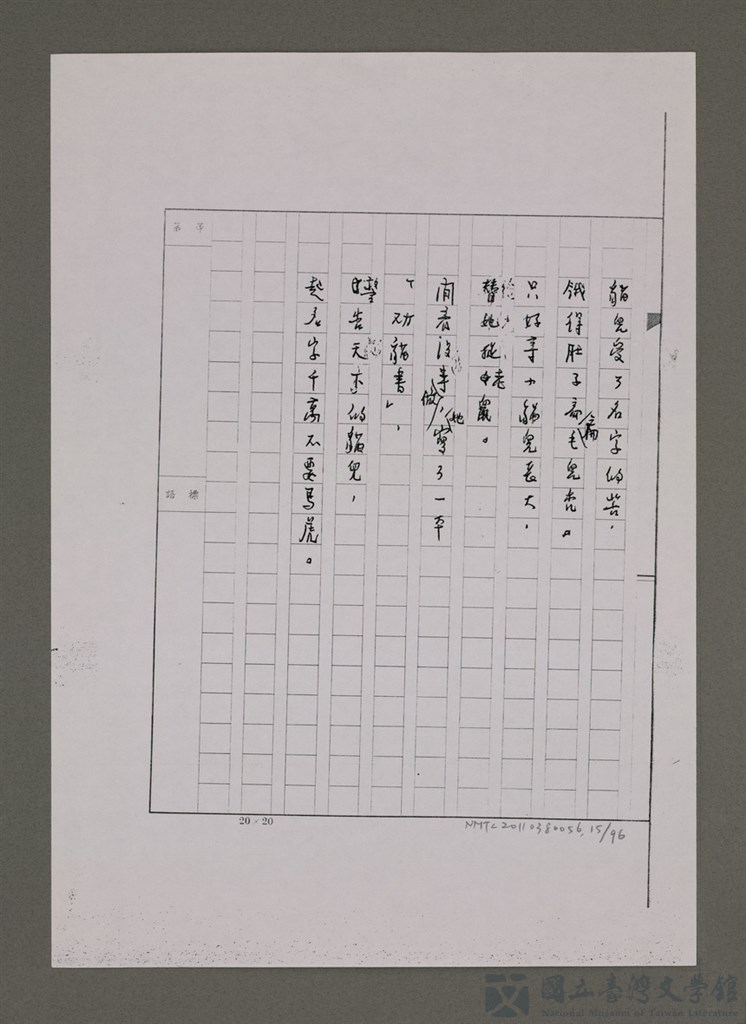 貓兒受了名字的苦,
餓得肚子扁毛兒禿。
只好等小貓兒長大,
替她捉老鼠。
閒着沒事做,她寫了一本
「劝貓書」,
警告天下的貓兒,
起名字千萬不要馬虎。
第 号
標 語
20×20
NMTL20110380056,15/96
國立臺灣文學館
National Museum of Taiwan Literature